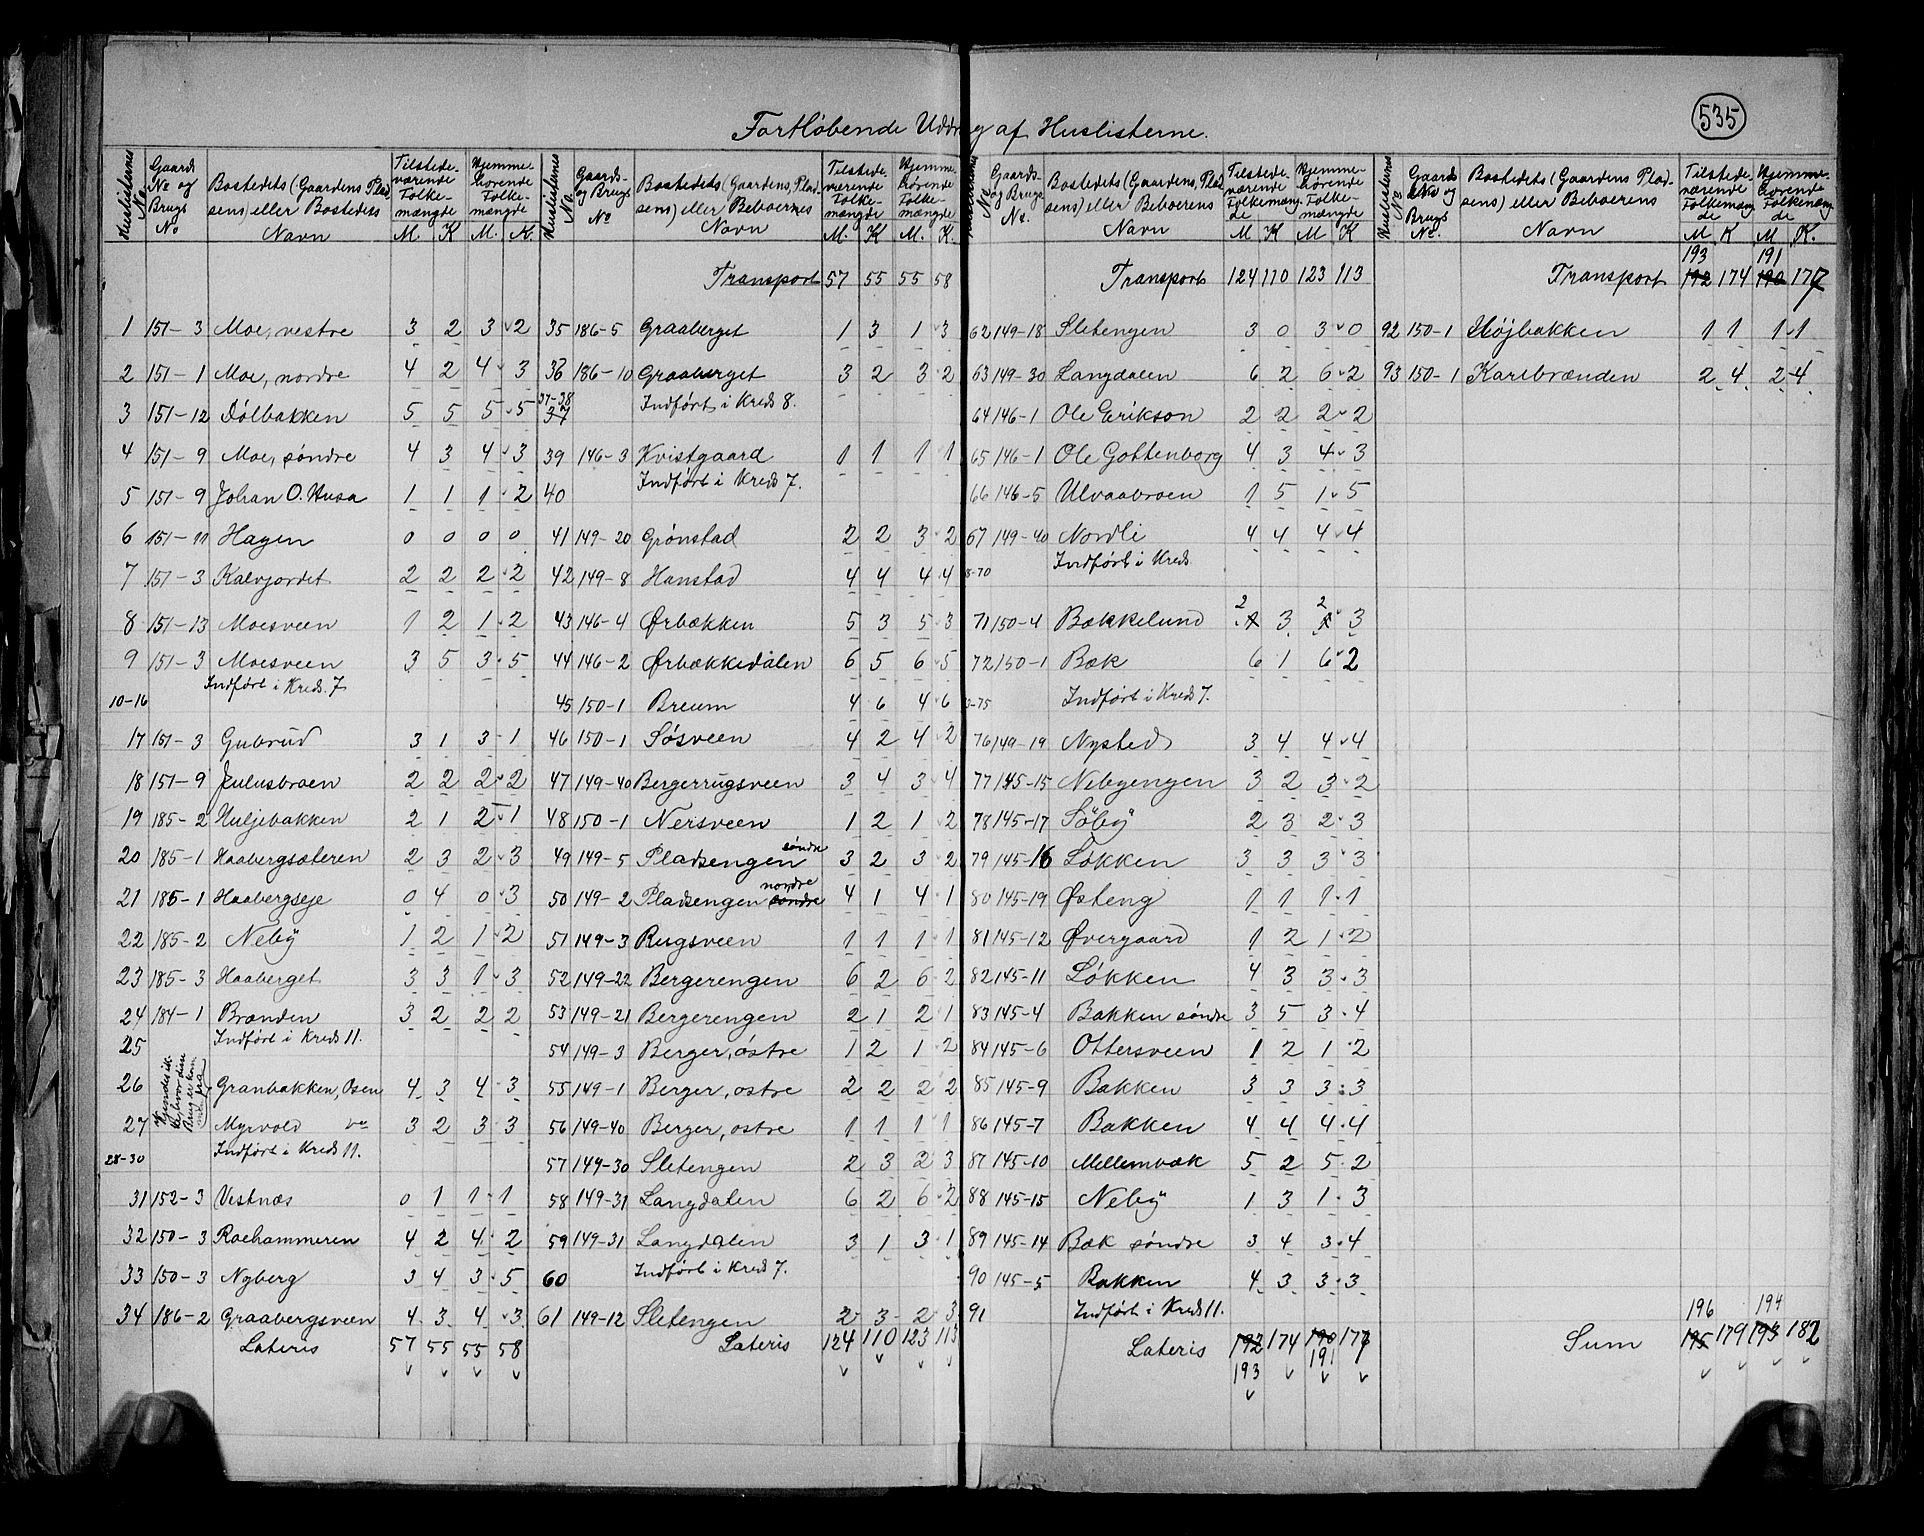 535
Fortløbende Uddrag af Huslisterne.
Huslisternes No. | Gaards No og Brugs No | Bostedets (Gaardens, Pladsens) eller Bostedets Navn | Tilstedeværende Folkemængde M. K | Hjemmehörende Folkemængde M. K.
1 151-3 Moe, vestre 3 2 3 2
2 151-1 Moe, nordre 4 2 4 3
3 151-12 Dölbakken 5 5 5 5
4 151-9 Moe, søndre 4 3 4 3
5 151-9 Johan O. Husa 1 1 1 2
6 151-11 Hagen 0 0 0 0
7 151-3 Kalvjordet 2 2 2 2
8 151-13 Moesveen 1 2 1 2
9 151-3 Moesveen 3 5 3 5
10-16 Indført i Kreds 7
17 151-3 Gubrud 3 1 3 1
18 151-9 Julusbroen 2 2 2 2
19 185-2 Huljebakken 2 1 2 1
20 185-1 Haabergsæteren 2 3 2 3
21 185-1 Haabergseje 0 4 0 3
22 185-2 Neby 1 2 1 2
23 185-3 Haaberget 3 3 1 3
24 184-1 Brænden 3 2 2 2
25 Indført i Kreds 11.
26 Granbakken, Osen 4 3 4 3
27 Myrvold 3 2 3 3
28-30 Indført i Kreds 11.
31 152-3 Vestnæs 0 1 1 1
32 150-3 Raehammeren 4 2 4 2
33 150-3 Nyberg 3 4 3 5
34 186-2 Graabergsveen 4 3 4 3
Lateris 57 55 55 58
Huslisternes No. | Gaards- og Brugs No | Bostedets (Gaardens, Pladsens) eller Beboernes Navn | Tilstedeværende Folkemængde M. K | Hjemmehörende Folkemængde M. K.
Transport 57 55 55 58
35 186-5 Graaberget 1 3 1 3
36 186-10 Graaberget 3 2 3 2
37-38 37 Indført i Kreds 8.
39 146-3 Kvistgaard 1 1 1 1
40 Indført i Kreds 7.
41 149-20 Grønstad 2 2 3 2
42 149-8 Hanstad 4 4 4 4
43 146-4 Ørbækken 5 3 5 3
44 146-2 Ørbækkedalen 6 5 6 5
45 150-1 Breum 4 6 4 6
46 150-1 Søsveen 4 2 4 2
47 149-40 Bergerrugsveen 3 4 3 4
48 150-1 Nersveen 1 2 1 2
49 149-5 Pladsengen søndre 3 2 3 2
50 149-2 Pladsengen søndre nordre 4 1 4 1
51 149-3 Rugsveen 1 1 1 1
52 149-22 Bergerengen 6 2 6 2
53 149-21 Bergerengen 2 1 2 1
54 149-3 Berger, østre 1 2 1 2
55 149-1 Berger, ostre 2 2 2 2
56 149-40 Berger, ostre 1 1 1 1
57 149-30 Sletengen 2 3 2 3
58 149-31 Langdalen 6 2 6 2
59 149-31 Langdalen 3 1 3 1
60 Indført i Kreds 7.
61 149-12 Sletengen 2 3 2 3
Lateris 124 110 123 113
Huslisternes No. | Gaards- og Brugs No. | Bostedets (Gaardens, Pladsens) eller Beboerens Navn | Tilstedeværende Folkemængde M K | Hjemmehörende Folkemængde M K
Transport 124 110 123 113
62 149-18 Sletengen 3 0 3 0
63 149-30 Langdalen 6 2 6 2
64 146-1 Ole Erikson 2 2 2 2
65 146-1 Ole Gottenborg 4 3 4 3
66 146-5 Ulvaabroen 1 5 1 5
67 149-40 Nordli 4 4 4 4
8-70 Indført i Kreds
71 150-4 Bækkelund 2 3 2 3
72 150-1 Bæk 6 1 6 2
3-75 Indført i Kreds 7.
76 149-19 Nysted 3 4 4 4
77 145-15 Nebyengen 3 2 3 2
78 145-17 Söby 2 3 2 3
79 145-16 Løkken 3 3 3 3
80 145-19 Østeng 1 1 1 1
81 145-12 Øvergaard 1 2 1 2
82 145-11 Løkken 4 3 3 3
83 145-4 Bakken søndre 3 5 3 4
84 145-6 Ottersveen 1 2 1 2
85 145-9 Bakken 3 3 3 3
86 145-7 Bakken 4 4 4 4
87 145-10 Mellembæk 5 2 5 2
88 145-15 Neby 1 3 1 3
89 145-14 Bæk søndre 3 4 3 4
90 145-5 Bakken 4 3 3 3
91 Indført i Kreds 11.
Lateris 192 174 190 177
193 191
Huslisternes No | Gaards No og Brugs No. | Bostedets (Gaardens, Pladsens) eller Beboerens Navn | Tilstedeværende Folkemængde M K | Hjemmehörende Folkemængde M K.
193 191
Transport 192 174 190 177
92 150-1 Højbakken 1 1 1 1
93 150-1 Karlbrænden 2 4 2 4
196 194
Sum 195 179 193 182